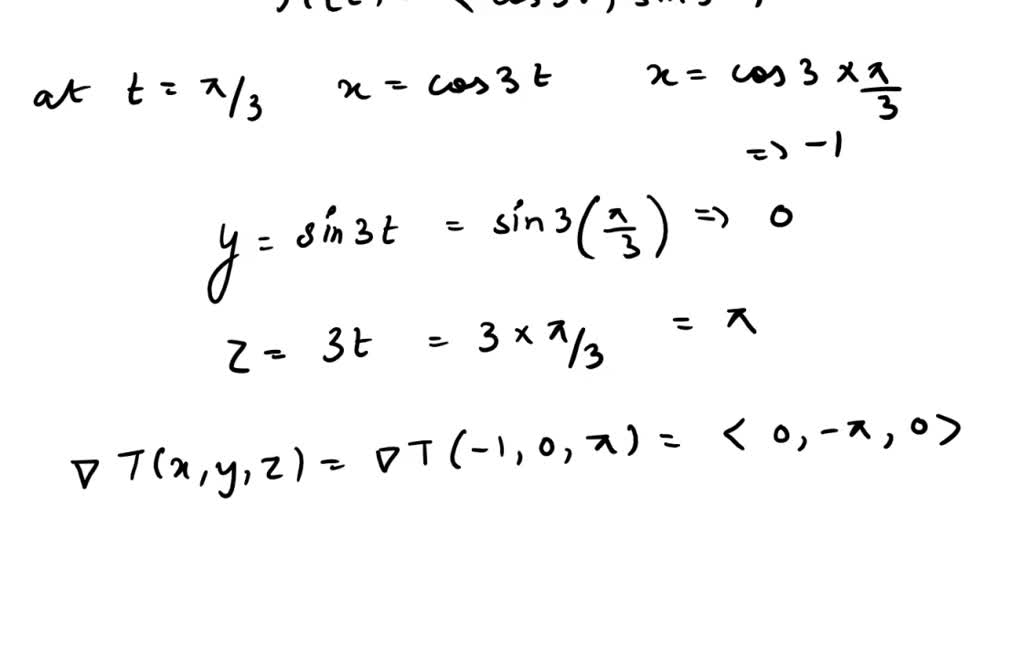 at t = π/3 x = cos 3t x = cos 3 × π/3
=> -1
y = sin 3t = sin 3(π/3) => 0
z = 3t = 3 × π/3 = π
∇T(x,y,z) = ∇T(-1, 0, π) = < 0, -π, 0 >